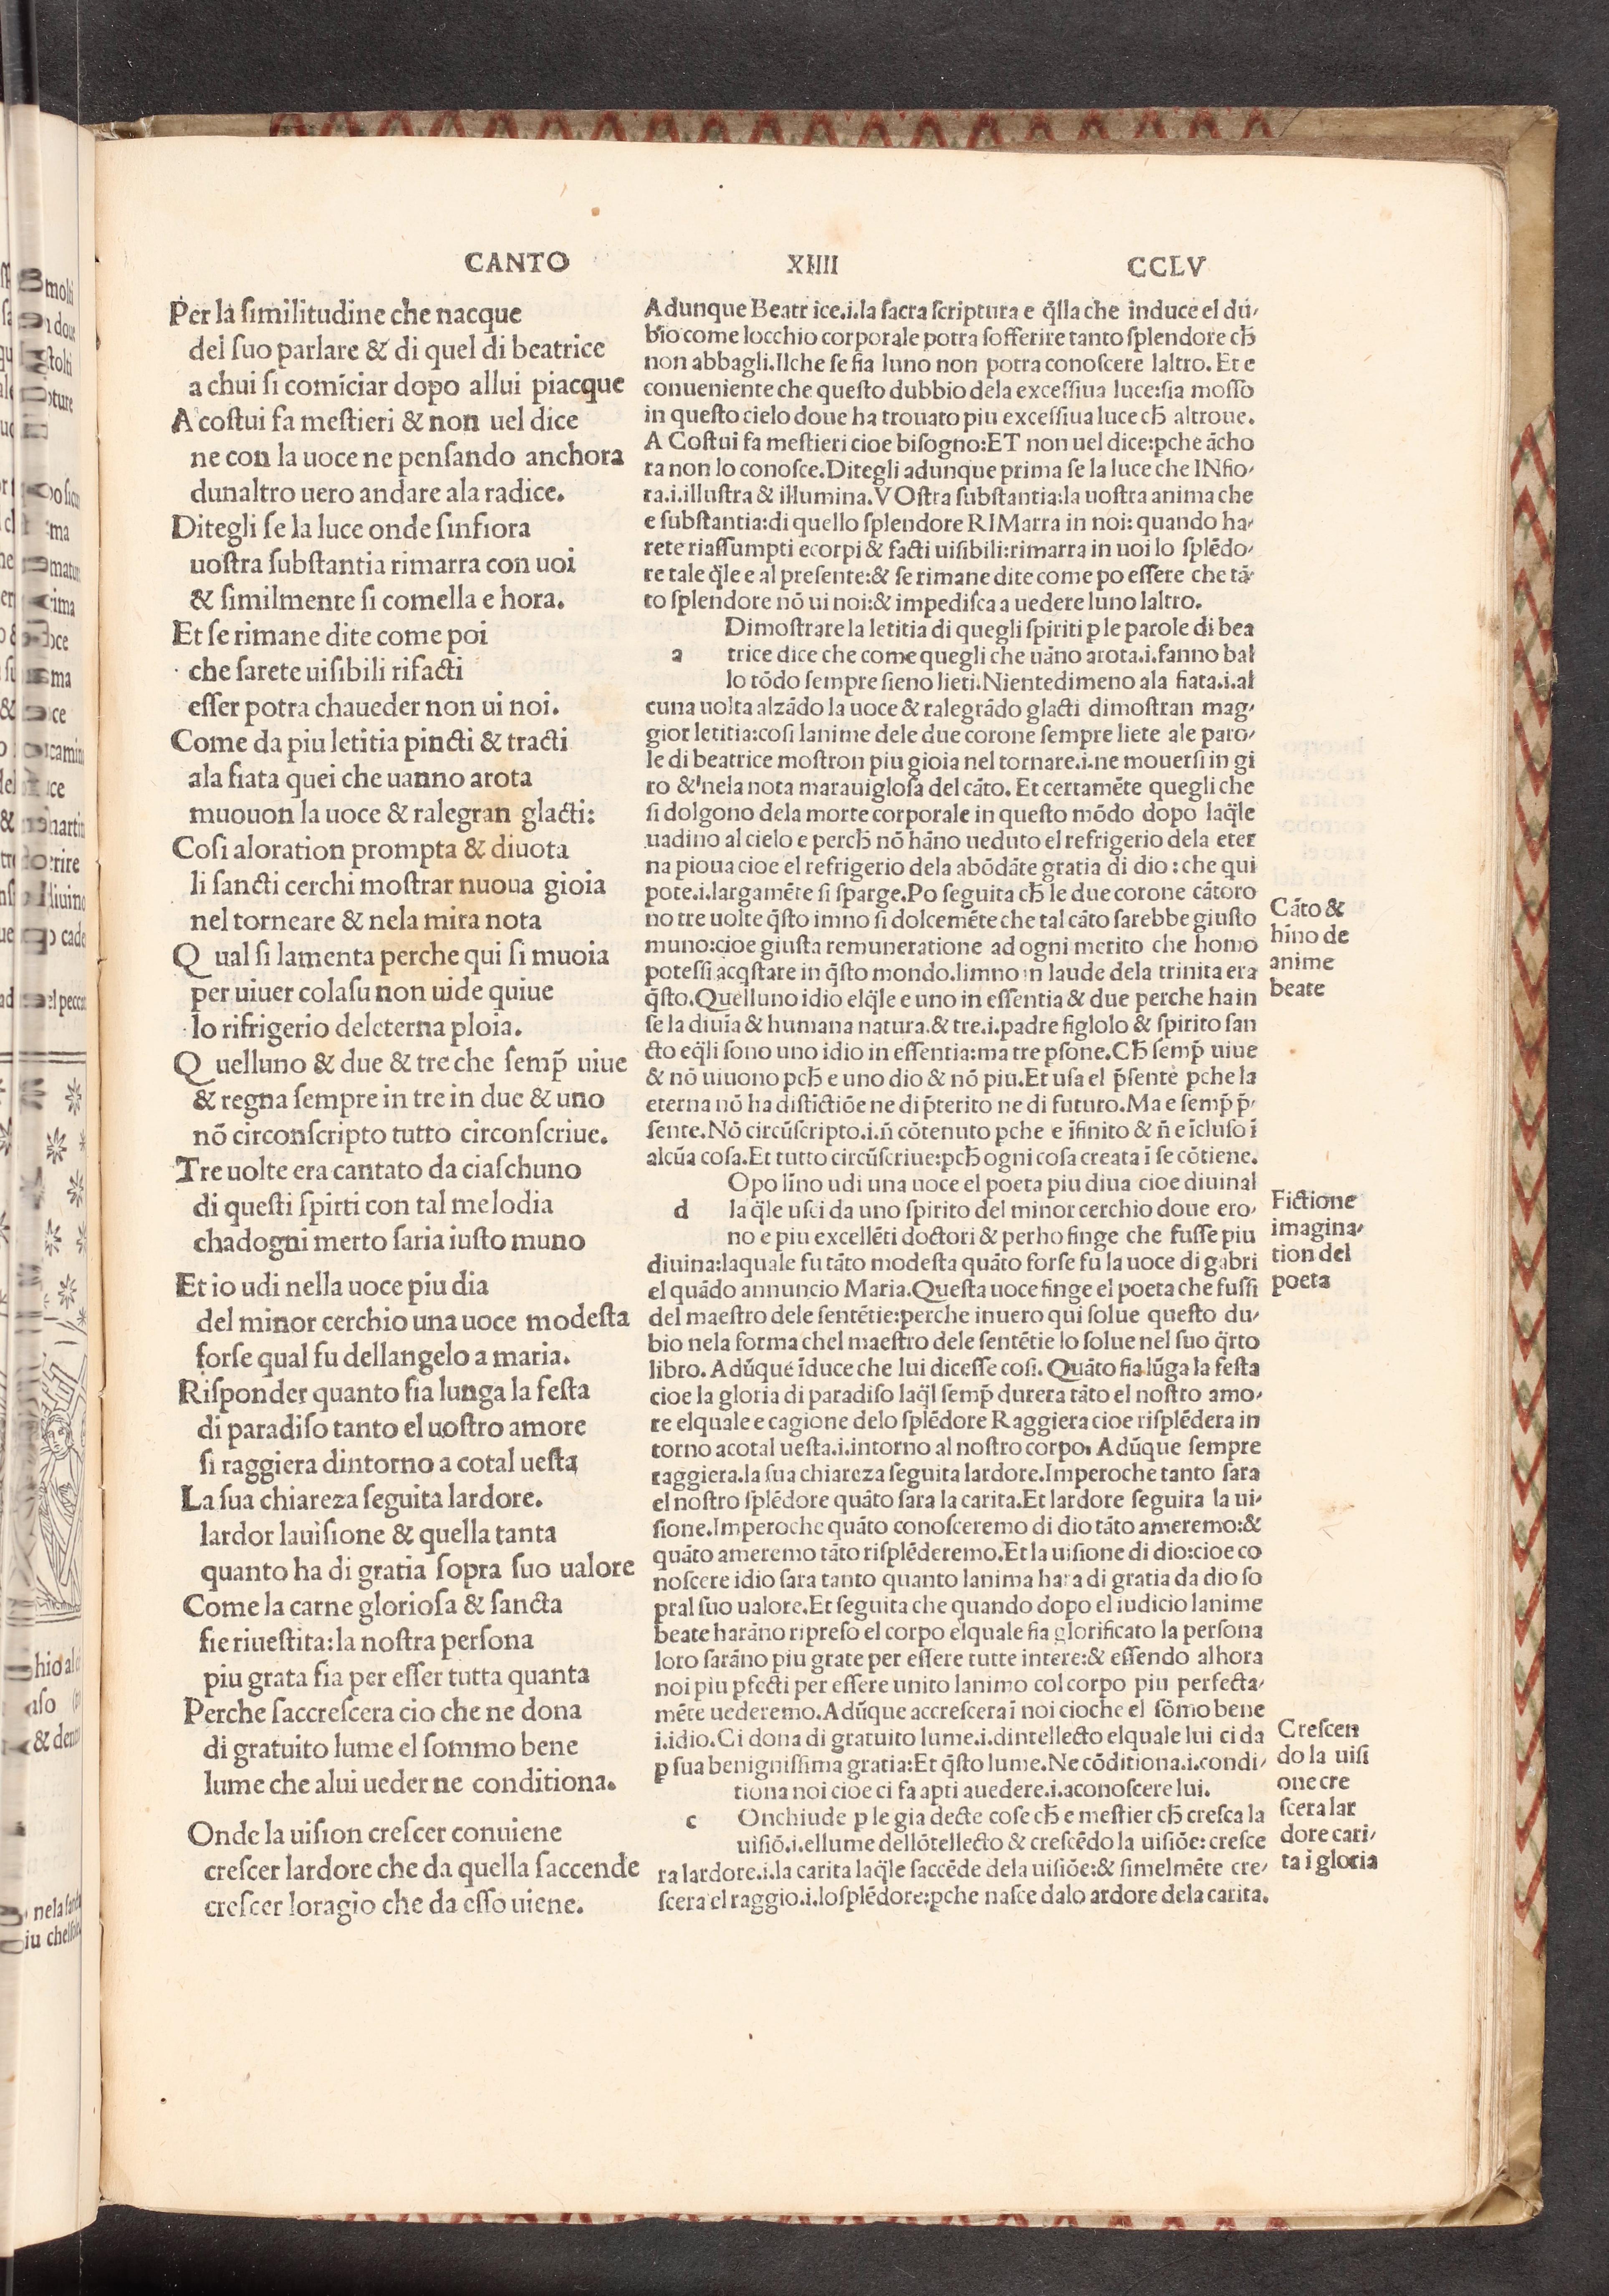 CANTO XIIII CCLV
Per la ſimilitudine che nacque
del ſuo parlare & di quel di beatrice
a chui ſi comīciar dopo allui piacque
A coſtui fa meſtieri & non uel dice
ne con la uoce ne penſando anchora
dunaltro uero andare ala radice.
Ditegli ſe la luce onde ſinfiora
uoſtra ſubſtantia rimarra con uoi
& ſimilmente ſi comella e hora.
Et ſe rimane dite come poi
che ſarete uiſibili rifacti
eſſer potra chaueder non ui noi.
Come da piu letitia pincti & tracti
ala fiata quei che uanno arota
muouon la uoce & ralegran glacti:
Coſi aloration prompta & diuota
li ſancti cerchi moſtrar nuoua gioia
nel torneare & nela mira nota
Q ual ſi lamenta perche qui ſi muoia
per uiuer colaſu non uide quiue
lo rifrigerio deleterna ploia.
Q uelluno & due & tre che ſemp̄ uiue
& regna ſempre in tre in due & uno
nō circonſcripto tutto circonſcriue.
Tre uolte era cantato da ciaſchuno
di queſti ſpirti con tal melodia
chadogni merto ſaria iuſto muno
Et io udi nella uoce piu dia
del minor cerchio una uoce modeſta
forſe qual fu dellangelo a maria.
Riſponder quanto fia lunga la feſta
di paradiſo tanto el uoſtro amore
ſi raggiera dintorno a cotal ueſta
La ſua chiareza ſeguita lardore.
lardor lauiſione & quella tanta
quanto ha di gratia ſopra ſuo ualore
Come la carne glorioſa & ſancta
fie riueſtita: la noſtra perſona
piu grata fia per eſſer tutta quanta
Perche ſaccreſcera cio che ne dona
di gratuito lume el ſommo bene
lume che alui ueder ne conditiona.
Onde la uiſion creſcer conuiene
creſcer lardore che da quella ſaccende
creſcer loragio che da eſſo uiene.
Adunque Beatr ice.i.la ſacra ſcriptura e q̄lla che induce el du/
bio come locchio corporale potra ſofferire tanto ſplendore cħ
non abbagli.Ilche ſe fia luno non potra conoſcere laltro. Et e
conueniente che queſto dubbio dela exceſſiua luce:ſia moſſo
in queſto cielo doue ha trouato piu exceſſiua luce cħ altroue.
A Coſtui fa meſtieri cioe biſogno:ET non uel dice:ꝑche ācho
ra non lo conoſce.Ditegli adunque prima ſe la luce che INfio/
ra.i.illuſtra & illumina.VOſtra ſubſtantia:la uoſtra anima che
e ſubſtantia:di quello ſplendore RIMarra in noi: quando ha/
rete riaſſumpti ecorpi & facti uiſibili:rimarra in uoi lo ſplēdo/
re tale q̄le e al preſente:& ſe rimane dite come po eſſere che tā/
to ſplendore nō ui noi:& impediſca a uedere luno laltro.
Dimoſtrare la letitia di quegli ſpiriti ꝑ le parole di bea
a trice dice che come quegli che uāno arota.i.fanno bal
lo tōdo ſempre ſieno lieti.Nientedimeno ala fiata.i.al
cuna uolta alzādo la uoce & ralegrādo glacti dimoſtran mag/
gior letitia:coſi lanime dele due corone ſempre liete ale paro/
le di beatrice moſtron piu gioia nel tornare.i.ne mouerſi in gi
ro & nela nota marauigloſa del cāto. Et certamēte quegli che
ſi dolgono dela morte corporale in queſto mōdo dopo laq̄le
uadino al cielo e percħ nō hāno ueduto el refrigerio dela eter
na pioua cioe el refrigerio dela abōdāte gratia di dio : che qui
pote.i.largamēte ſi ſparge.Po ſeguita cħ le due corone cātoro
no tre uolte q̄ſto imno ſi dolcemēte che tal cāto ſarebbe giuſto
muno:cioe giuſta remuneratione ad ogni merito che homo
poteſſi acq̄ſtare in q̄ſto mondo.limno in laude dela trinita era
q̄ſto.Quelluno idio elq̄le e uno in eſſentia & due perche ha in
ſe la diuīa & humana natura.& tre.i.padre figlolo & ſpirito ſan
cto eq̄li ſono uno idio in eſſentia:ma tre ꝑſone.Cħ ſemp̄ uiue
& nō uiuono ꝑcħ e uno dio & nō piu.Et uſa el p̄ſente ꝑche la
eterna nō ha diſtīctiōe ne di p̄terito ne di futuro.Ma e ſemp̄ p̄/
ſente.Nō circūſcripto.i.n̄ cōtenuto ꝑche e īfinito & n̄ e īcluſo ī
alcūa coſa.Et tutto circūſcriue:ꝑcħ ogni coſa creata ī ſe cōtiene.
Opo līno udi una uoce el poeta piu diua cioe diuinal
d la q̄le uſci da uno ſpirito del minor cerchio doue ero/
no e piu excellēti doctori & perho finge che fuſſe piu
diuina:laquale fu tāto modeſta quāto forſe fu la uoce di gabri
el quādo annuncio Maria.Queſta uoce finge el poeta che fuſſi
del maeſtro dele ſentētie:perche inuero qui ſolue queſto du/
bio nela forma chel maeſtro dele ſentētie lo ſolue nel ſuo q̄rto
libro. Adūque īduce che lui diceſſe coſi. Quāto fia lūga la feſta
cioe la gloria di paradiſo laq̄l ſemp̄ durera tāto el noſtro amo/
re elquale e cagione delo ſplēdore Raggiera cioe riſplēdera in
torno acotal ueſta.i.intorno al noſtro corpo. Adūque ſempre
raggiera.la ſua chiareza ſeguita lardore.Imperoche tanto ſara
el noſtro ſplēdore quāto ſara la carita.Et lardore ſeguira la ui/
ſione.Imperoche quāto conoſceremo di dio tāto ameremo:&
quāto ameremo tāto riſplēderemo.Et la uiſione di dio:cioe co
noſcere idio ſara tanto quanto lanima hara di gratia da dio ſo
pral ſuo ualore.Et ſeguita che quando dopo el iudicio lanime
beate harāno ripreſo el corpo elquale fia glorificato la perſona
loro ſarāno piu grate per eſſere tutte intere:& eſſendo alhora
noi piu ꝑfecti per eſſere unito lanimo col corpo piu perfecta/
mēte uederemo.Adūque accreſcera ī noi cioche el ſōmo bene
i.idio.Ci dona di gratuito lume.i.dintellecto elquale lui ci da
ꝑ ſua benigniſſima gratia:Et q̄ſto lume.Ne cōditiona.i.condi/
tiona noi cioe ci fa apti auedere.i.aconoſcere lui.
c Onchiude ꝑ le gia decte coſe cħ e meſtier cħ creſca la
uiſiō.i.ellume dellōtellecto & creſcēdo la uiſiōe: creſce
ra lardore.i.la carita laq̄le ſaccēde dela uiſiōe:& ſimelmēte cre/
ſcera el raggio.i.loſplēdore:ꝑche naſce dalo ardore dela carita.
Cāto &
hino de
anime
beate
Fictione
imagina/
tion del
poeta
Creſcen
do la uiſi
one cre
ſcera lar
dore cari/
ta i gloria